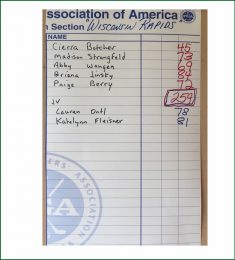 Association of America
n Section Wisconsin Rapids
NAME
Cierra Botcher 45
Madison Strangfeld
Abby
Briana Jinsky
Paige Berry 72
259
JV
Lauren Ontl 78
Katelynn Fleisner 81